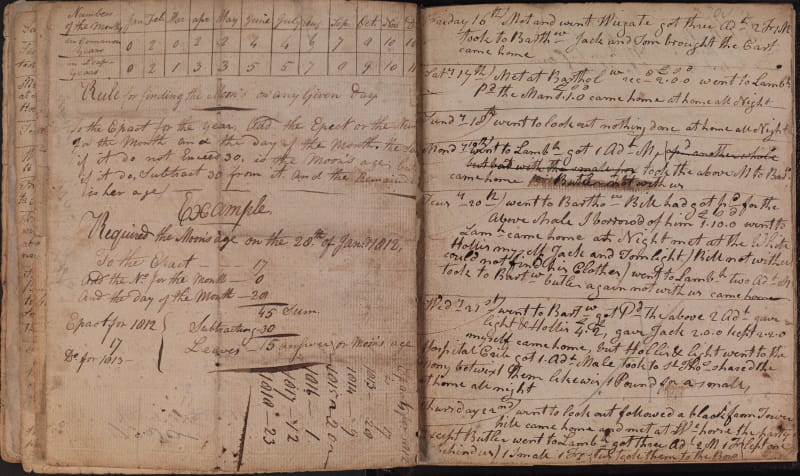 Numbers of the Month Jan Feb Mar apr May June July Aug Sep Oct Nov D
in Common Years 0 2 0 2 4 4 6 7 8 10 10
in Leap Years 0 2 1 3 3 5 5 7 8 9 10
Rule for finding the Moon's on any Given Day
To the Epact for the year, Add the Epect or the
to the Month and the day of the Month, the
if it do not exceed 30, is the Moon's age, but
if it do, Subtract 30 from it, and the Remainder
is her age
Example
Required the Moon's age on the 28th of Jany 1812,
To the Epact — 17
Add the No. for the Month — 0
And the day of the Month — 28
45 Sum.
Epact for 1812 Subtracting 30
17
Do for 1813 Leaves — 15 answer or Moon's age
1813 28
1814 — 9
1816 — 1
1817 — 12
1818 — 23
16th Met and went Wygate got three Adt 2
took to Barthw Jack and Tom brought the Cart
came home
Met at Bartholw recd 8.0.0 went to Lambh
Pd the Man 1.1.0 came home at home all Night
18th went to look out nothing done at home all Night
went to Lambh got 1 Adt M,
but bad with the small pox took the above M to Bar
came home Butler not with us
20th went to Bartho Bill had got pd for the
Above Male I borrowd of him 1.10.0 went to
Lamb came home at Night met at the White
Hollis my self Jack and Tom light / Bill not with us
could not find his Clother / went to Lambh two Adt M
took to Bartw butler again not with us came home
Wedy 21st went to Bartw got Pd the above 2 Adt
light & Hollis gave Jack 2.0.0 light 2.2.0
myself came home, but Hollis & light went to the
Hospital got 1 Adt Male took to St Thos shared the
mony betwext them likewise 1 Pound for a small,
at home all night
Thursday 22nd went to look out followed a black from Tower
hill came home and met at Wt horse the party
except Butler went to Lambh got three Adt 2 M 1
1 Small 1 took them to the Boro